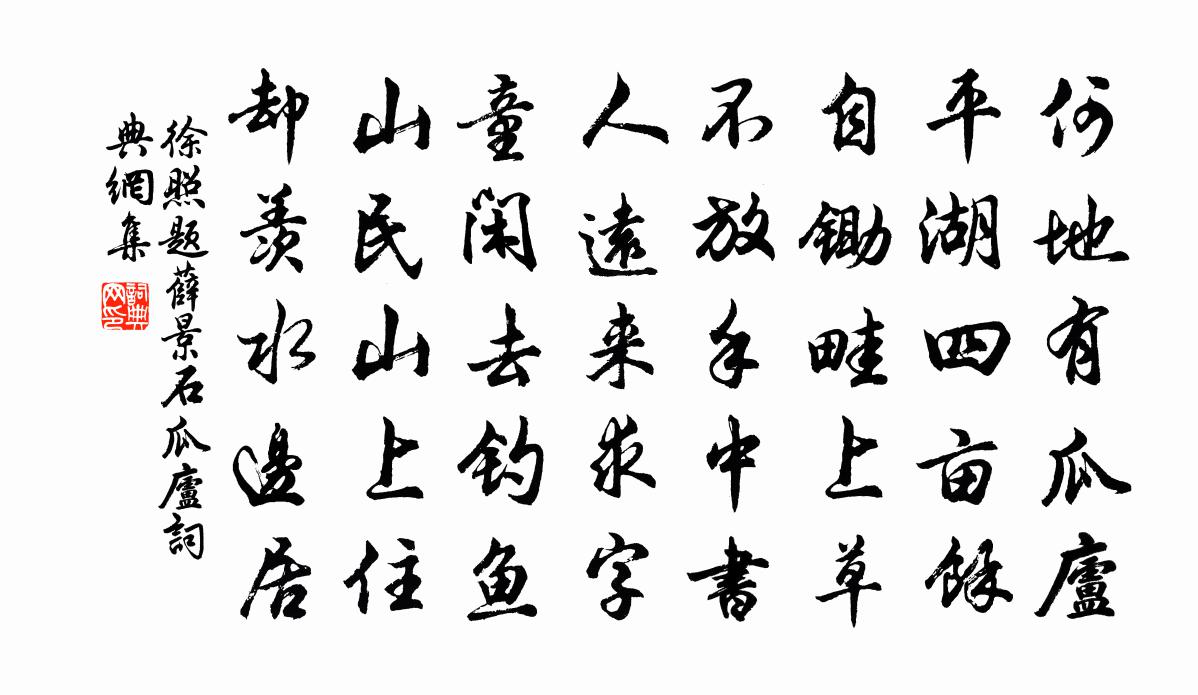 何地有瓜廬
平湖四亩餘
自鋤畦上草
不放手中書
人遠来求字
童閑去钓鱼
山民山上住
却羡水邊居
徐照题薛景石瓜廬詞
典網集
詞典
网印